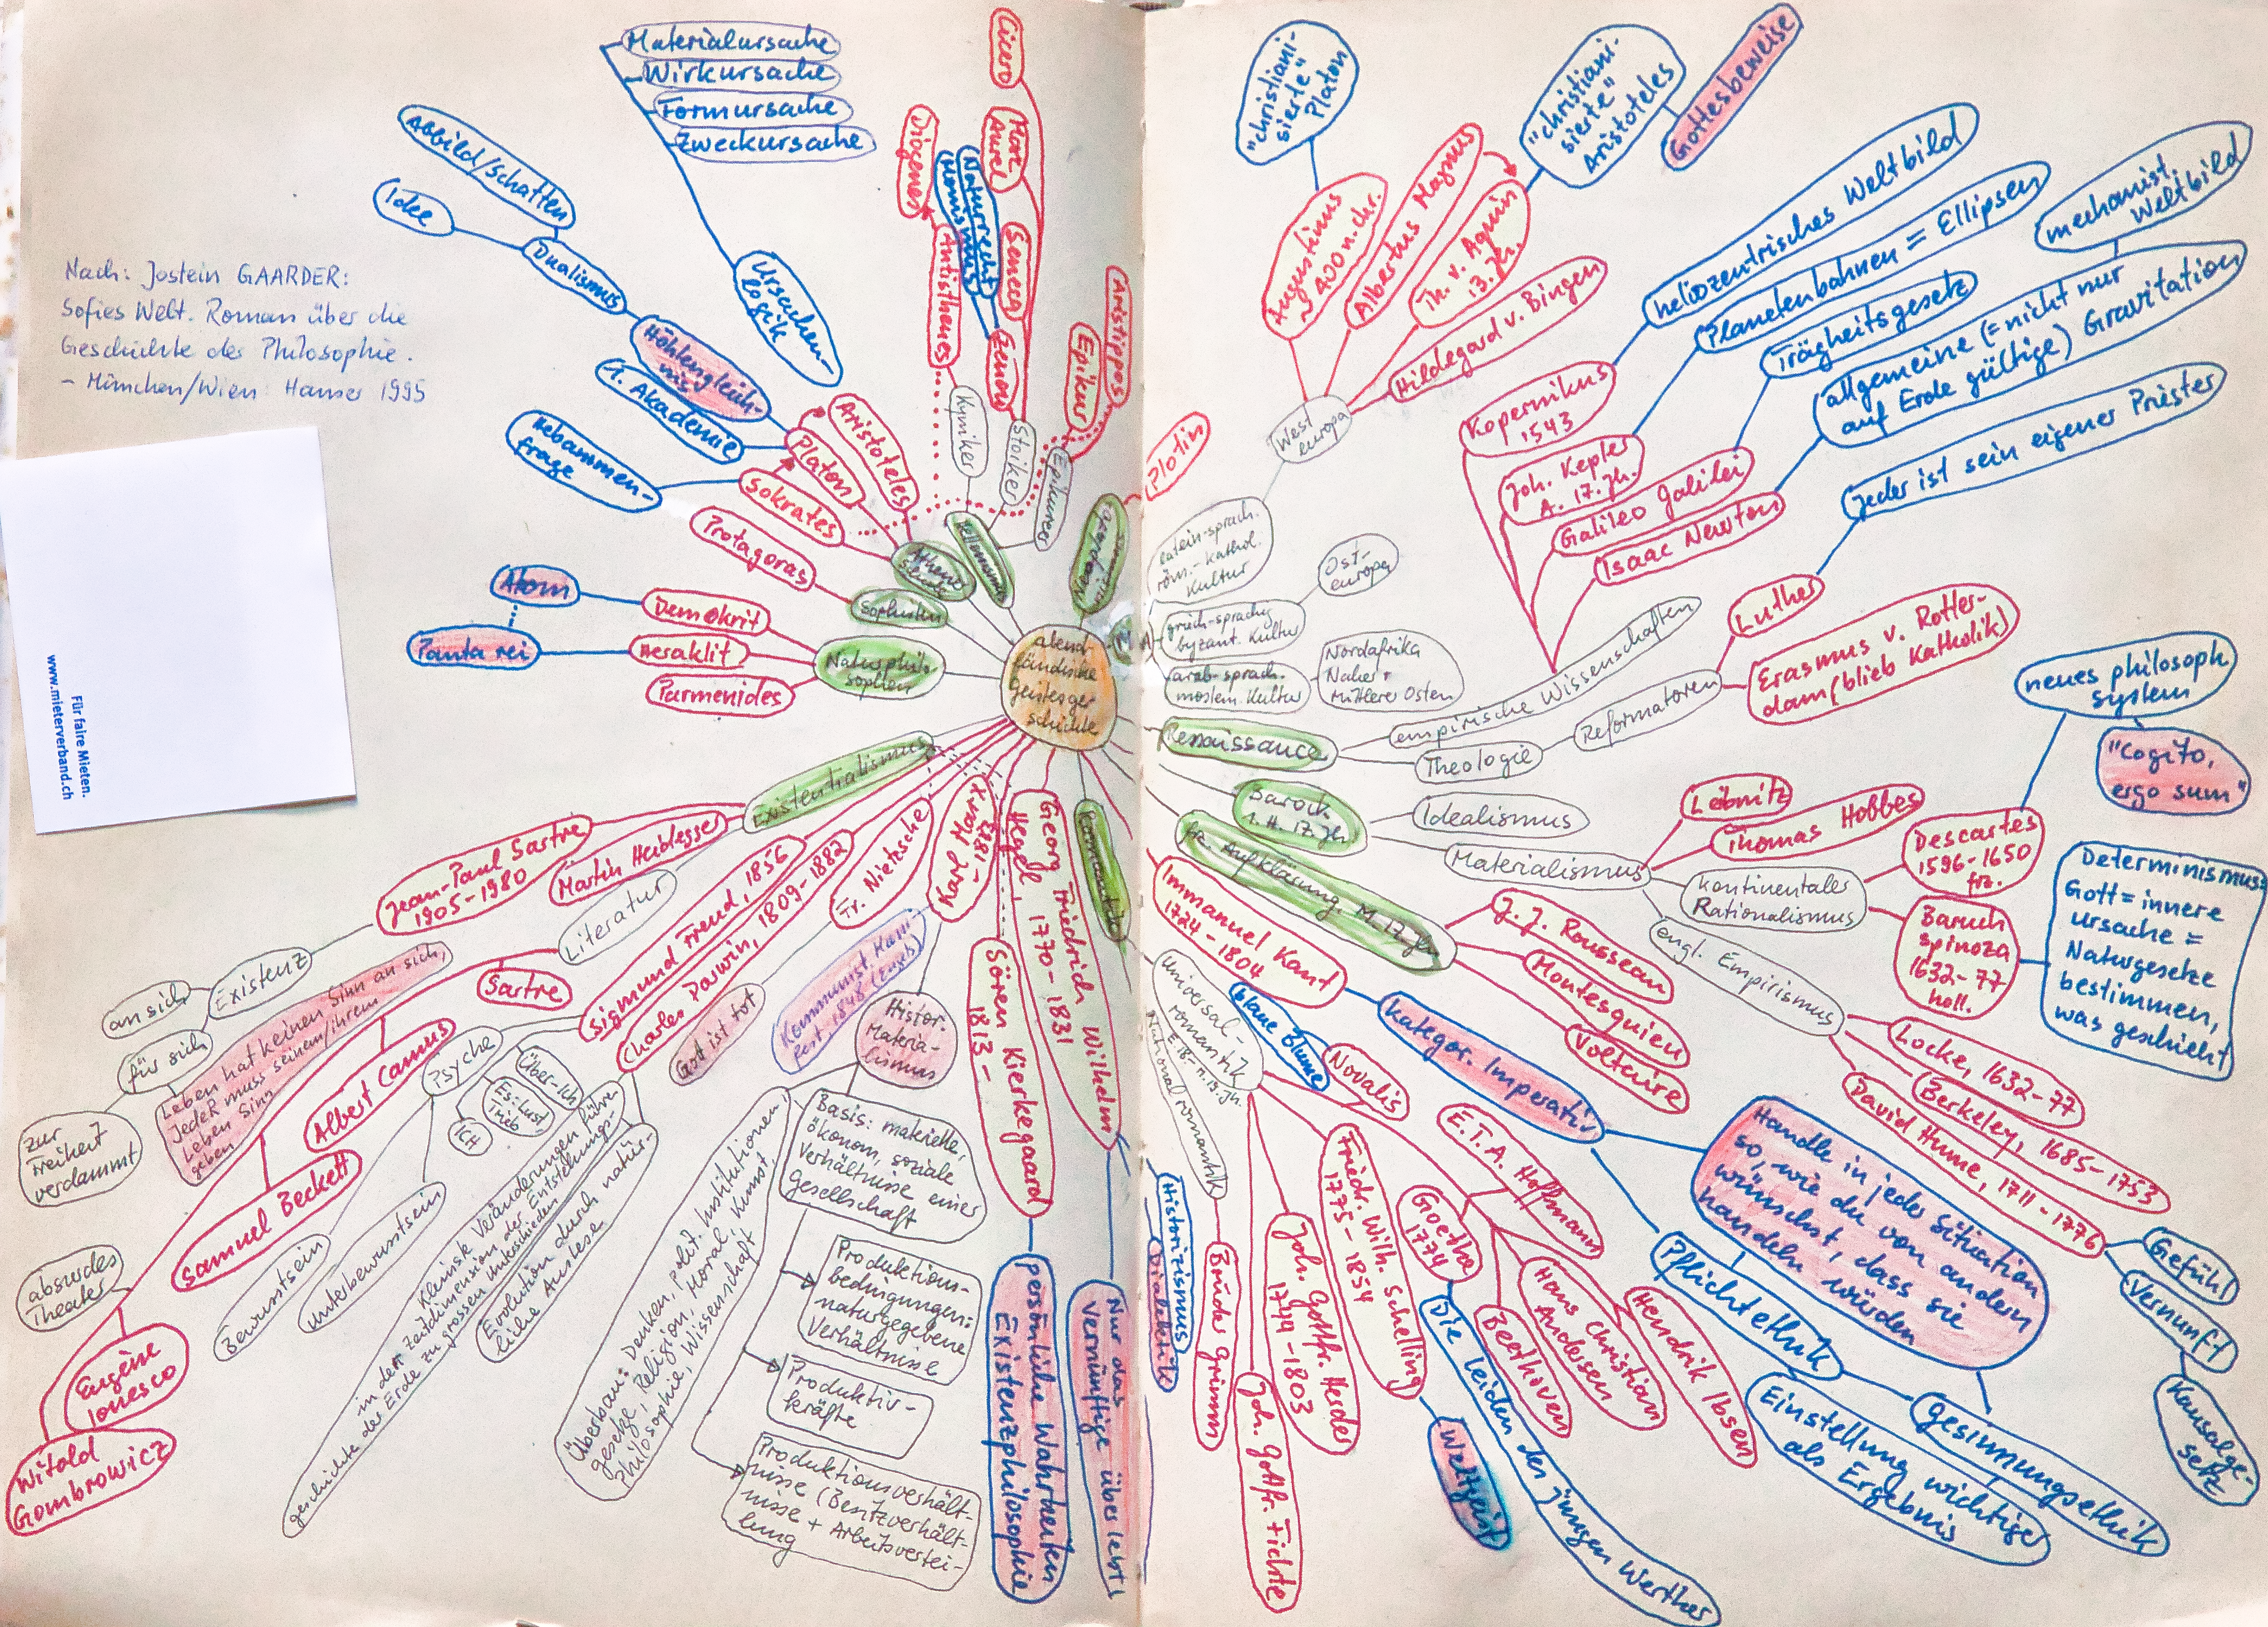 Nach: Jostein GAARDER:
Sofies Welt. Roman über die
Geschichte der Philosophie.
– München/Wien: Hanser 1995
Für faire Mieten.
www.mieterverband.ch
abend-
ländische
Geistesge-
schichte
Naturphilo-
sophen
Demokrit
Atom
Heraklit
Panta rei
Parmenides
Sophisten
Protagoras
Athene
Sokrates
Hebammen-
frage
Platon
1. Akademie
Höhlengleich-
nis
Dualismus
Idee
Abbild/Schatten
Aristoteles
Ursachen-
logik
Materialursache
Wirkursache
Formursache
Zweckursache
Hellenismus
Kyniker
Antisthenes
Diogenes
Stoiker
Zenon
Naturrecht
Monismus
Seneca
Marc
Aurel
Cicero
Epikureer
Epikur
Aristippos
Plotin
MA
latein-sprach.
röm.-kathol.
Kultur
West
europa
Augustinus
~ 400 n. Chr.
"christiani-
sierte"
Platon
Albertus Magnus
Th. v. Aquin
13. Jh.
"christiani-
sierte"
Aristoteles
Gottesbeweise
Hildegard v. Bingen
griech-sprachig
byzant. Kultur
Ost-
europa
arab-sprach.
moslem. Kultur
Nordafrika
Naher +
Mittlerer Osten
Renaissance
empirische Wissenschaften
Kopernikus
1543
heliozentrisches Weltbild
Joh. Kepler
A. 17. Jh.
Planetenbahnen = Ellipsen
Galileo Galilei
Trägheitsgesetz
Isaac Newton
allgemeine (= nicht nur
auf Erde gültige) Gravitation
mechanist.
Weltbild
Theologie
Reformatoren
Luther
Jeder ist sein eigener Priester
Erasmus v. Rotter-
dam (blieb Katholik)
Barock
1. H. 17. Jh.
Idealismus
Materialismus
Leibnitz
Thomas Hobbes
kontinentaler
Rationalismus
Descartes
1596-1650
frz.
neues philosoph
system
"Cogito,
ergo sum"
Baruch
Spinoza
1632-77
holl.
Determinismus:
Gott = innere
Ursache =
Naturgesetze
bestimmen,
was geschieht
engl. Empirismus
Locke, 1632-77
Berkeley, 1685-1753
David Hume, 1711-1776
Gefühl
Vernunft
Kausalge-
setz
fr. Aufklärung, M. 17. Jh.
J. J. Rousseau
Montesquieu
Voltaire
Immanuel Kant
1724-1804
kategor. Imperativ
Handle in jeder Situation
so, wie du von andern
wünschst, dass sie
handeln würden
Pflichtethik
Gesinnungsethik
Einstellung wichtiger
als Ergebnis
Romantik
Universal-
romantik
E. 18.-M. 19. Jh.
Nationalromantik
blaue Blume
Novalis
E.T.A. Hoffmann
Goethe
1774
Die Leiden des jungen Werther
Beethoven
Hans Christian
Andersen
Hendrik Ibsen
Friedr. Wilh. Schelling
1775-1854
Weltgeist
Joh. Gottfr. Herder
1744-1803
Joh. Gottfr. Fichte
Brüder Grimm
Georg Friedrich Wilhelm
Hegel, 1770-1831
Historizismus
Dialektik
Nur das
Vernünftige überlebt
Sören Kierkegaard
1813-
persönliche Wahrheiten
Existenzphilosophie
Karl Marx
-1883
Kommunist. Mani
fest 1848 (Engels)
Histor.
Materia-
lismus
Basis: materielle,
ökonom, soziale
Verhältnisse einer
Gesellschaft
Produktions-
bedingungen:
naturgegebene
Verhältnisse
Produktiv-
kräfte
Produktionsverhält-
nisse (Besitzverhält-
nisse + Arbeitsvertei-
lung
Überbau: Denken, polit. Institutionen,
Gesetze, Religion, Moral, Kunst,
Philosophie, Wissenschaft
Fr. Nietzsche
Gott ist tot
Charles Darwin, 1809-1882
Kleinste Veränderungen führen
in der Zeitdimension der Entstehungs-
geschichte der Erde zu grossen Unterschieden
Evolution durch natür-
liche Auslese
Sigmund Freud, 1856
Psyche
Über-Ich
Es: Lust
Trieb
ICH
Unterbewusstsein
Bewusstsein
Existentialismus
Martin Heidegger
Jean-Paul Sartre
1905-1980
Existenz
an sich
für sich
zur
Freiheit
verdammt
Leben hat keinen Sinn an sich,
Jeder muss seinem/ihrem
Leben Sinn
geben
Literatur
Sartre
Albert Camus
Samuel Beckett
absurdes
Theater
Eugène
Ionesco
Witold
Gombrowicz